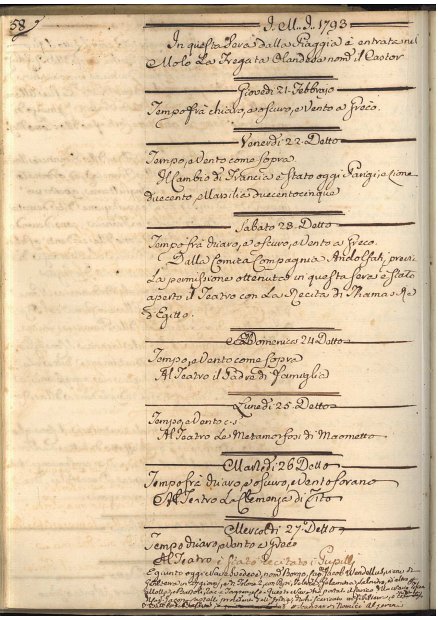 58
J. M. J. 1793
In questa sera dalla Piaggia è entrata nel
Molo La Fregata Olandesa nom.ª il Castor
Giovedì 21 Febbrajo
Tempo frà chiaro, e oscuro, e Vento a Greco.
Venerdì 22 Detto
Tempo, e Vento come sopra
Il Cambio di Francia è stato oggi Parigi, e Lione
duecento, e Marsilia duecentocinque
Sabato 23 Detto
Tempo frà chiaro, e oscuro, e Vento a Greco.
Dalla Comica Compagnia Andolfati, previa
La permissione ottenuta, in questa sera è stato
aperto il Teatro con La Recita di Thamas Re
d'Egitto.
Domenica 24 Detto
Tempo, e Vento come sopra
Al Teatro il Padre di famiglia
Lunedì 25 Detto
Tempo, e Vento c. s.
Al Teatro Le Metamorfosi di Maometto
Martedì 26 Detto
Tempo frà chiaro, e oscuro, e Vento forano
Al Teatro La Clemenza di Tito
Mercoldì 27 Detto
Tempo chiaro, e Vento a Greco
Al Teatro è stato recitato i Pupilli